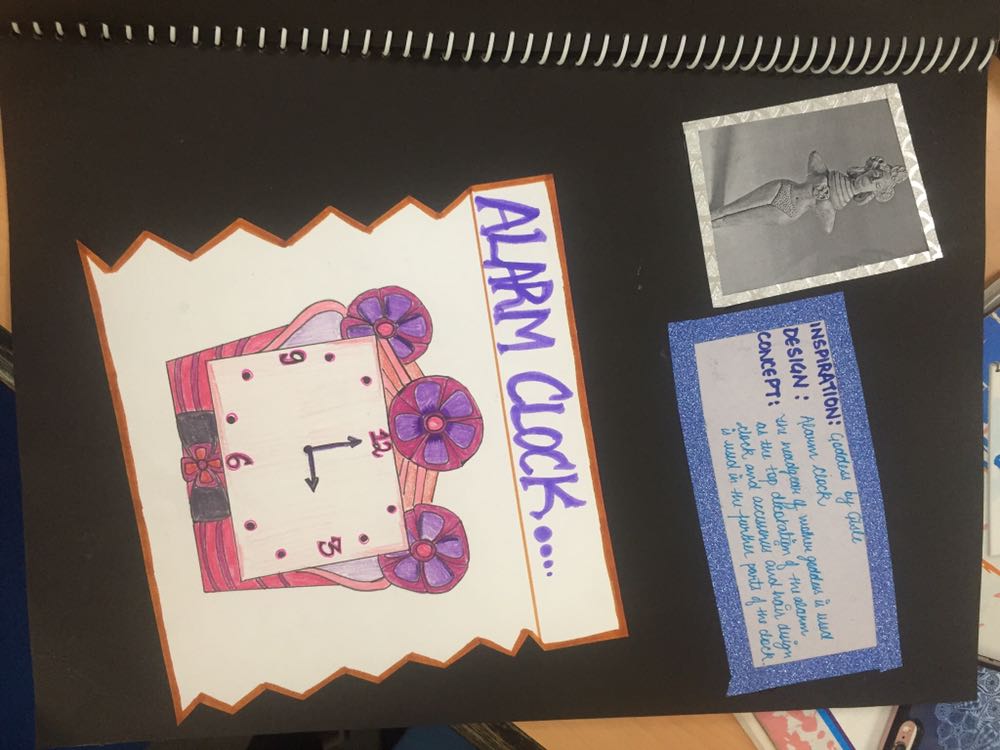 ALARM CLOCK....
12
3
6
9
INSPIRATION: Goddess by Cisle
DESIGN: Alarm clock
CONCEPT: the headgear of mother goddess is used
as the top decoration of the alarm
clock and accesories and hair design
is used in the further parts of the clock.